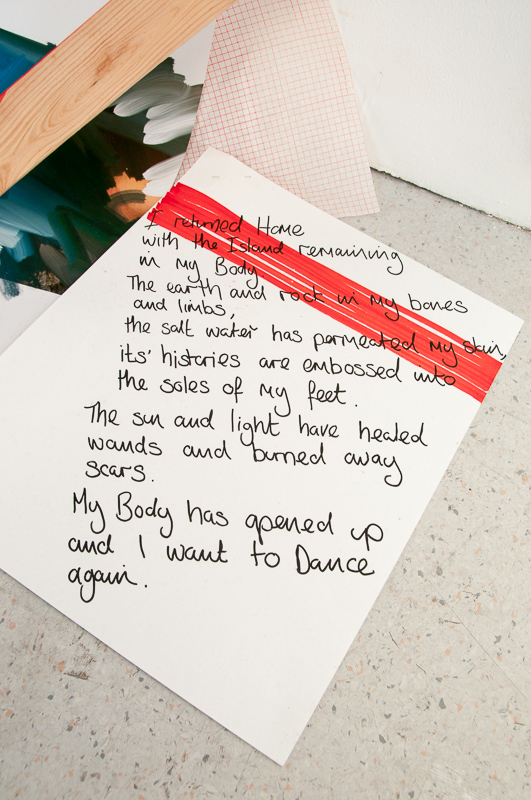 I returned Home
with the Island remaining
in my Body
The earth and rock in my bones
and limbs,
the salt water has permeated my skin,
its' histories are embossed into
the soles of my feet.
The sun and light have healed
wounds and burned away
scars.
My Body has opened up
and I want to Dance
again.